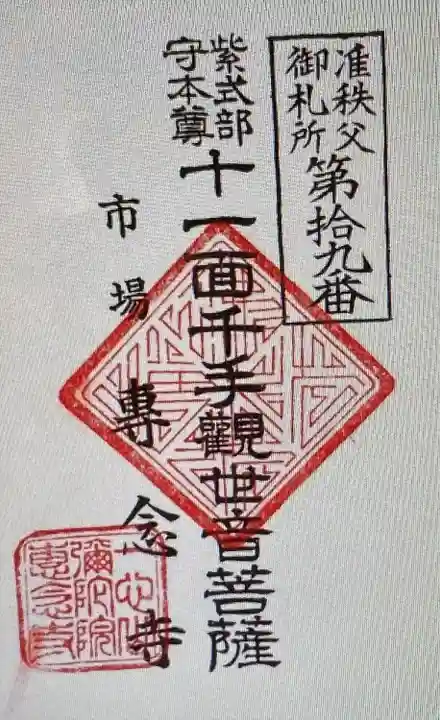 准秩父
御札所
第拾九番
紫式部
守本尊
十一面千手觀世音菩薩
市場 專念寺
彌陀院
專念寺